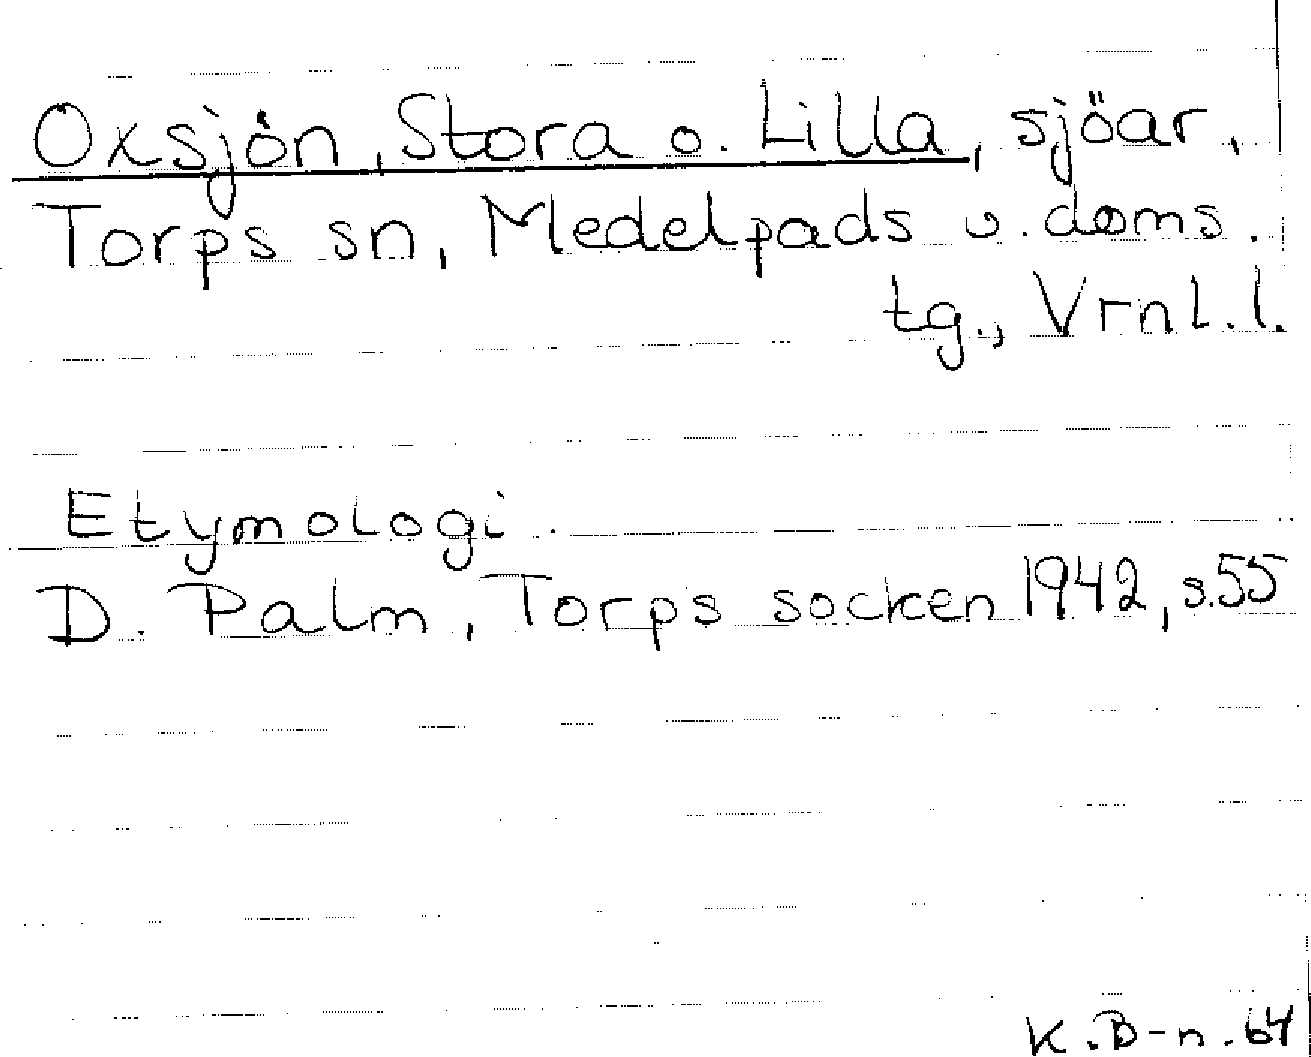 Oxsjön, Stora o. Lilla, sjöar,
Torps sn, Medelpads v. doms.
tg., Vrnl.l.
Etymologi.
D. Palm, Torps socken 1942, s.55
K.B-n.64